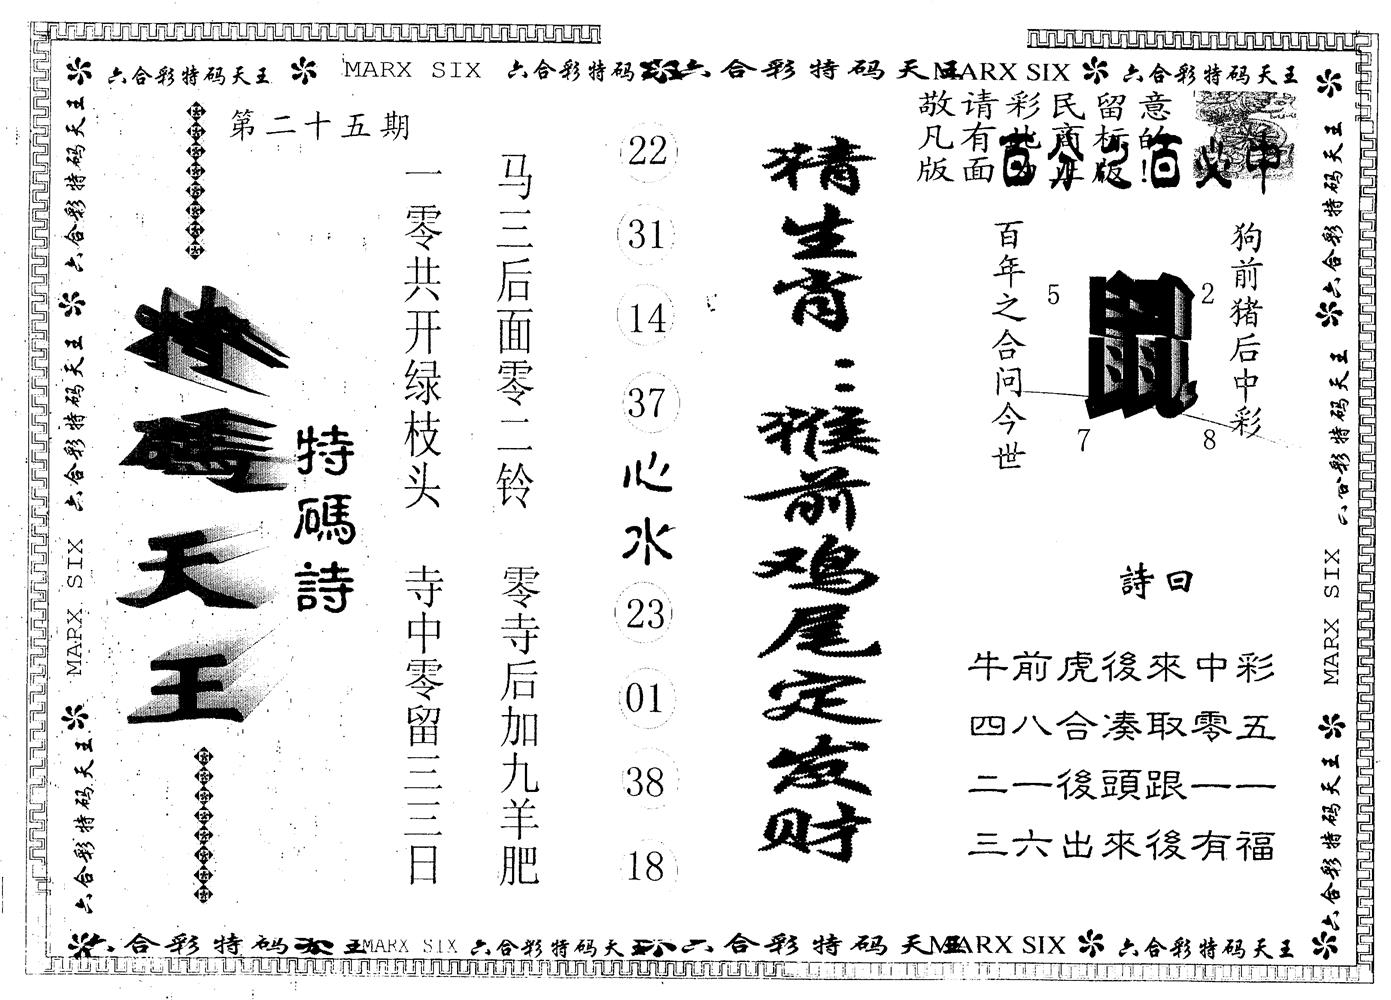 六合彩特码天王 MARX SIX 六合彩特码 六合彩特码天王 MARX SIX 六合彩特码天王
敬请彩民留意
凡有此商标的
版面为正版!
百分之百必中
第二十五期
特碼天王
特碼詩
一零共开绿枝头 寺中零留三三日
马三后面零二铃 零寺后加九羊肥
22
31
14
37
心水
23
01
38
18
猜生肖：猴前鸡尾定发财
百年之合问今世
5
鼠
2
7
8
狗前猪后中彩
詩曰
牛前虎後來中彩
四八合凑取零五
二一後頭跟一一
三六出來後有福
六合彩特码天王 六合彩特码天王 MARX SIX 六合彩特码天王
六合彩特码天王 六合彩特码天王 MARX SIX 六合彩特码天王
六合彩特码天王 MARX SIX 六合彩特码天王 六合彩特码天王 MARX SIX 六合彩特码天王